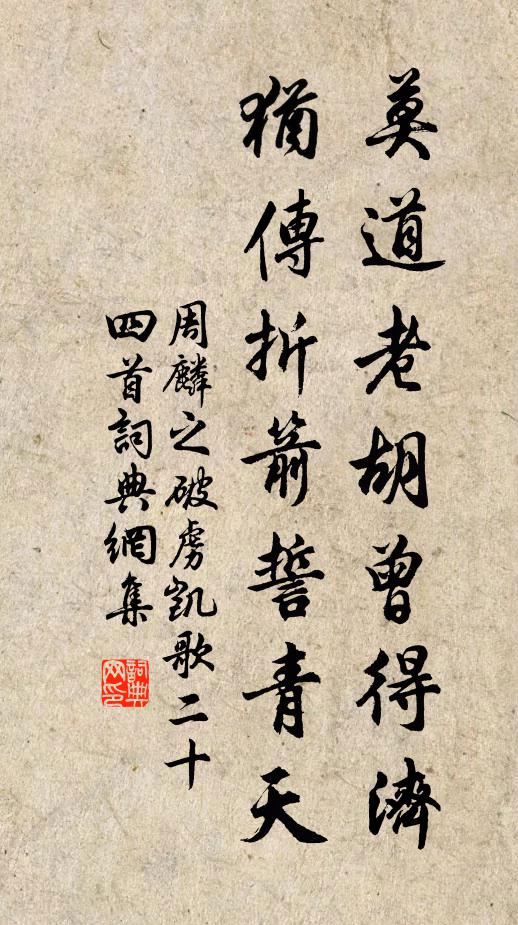 莫道老胡曾得濟
猶傳折箭誓青天
周麟之破虜凱歌二十
四首詞典網集
詞典网印